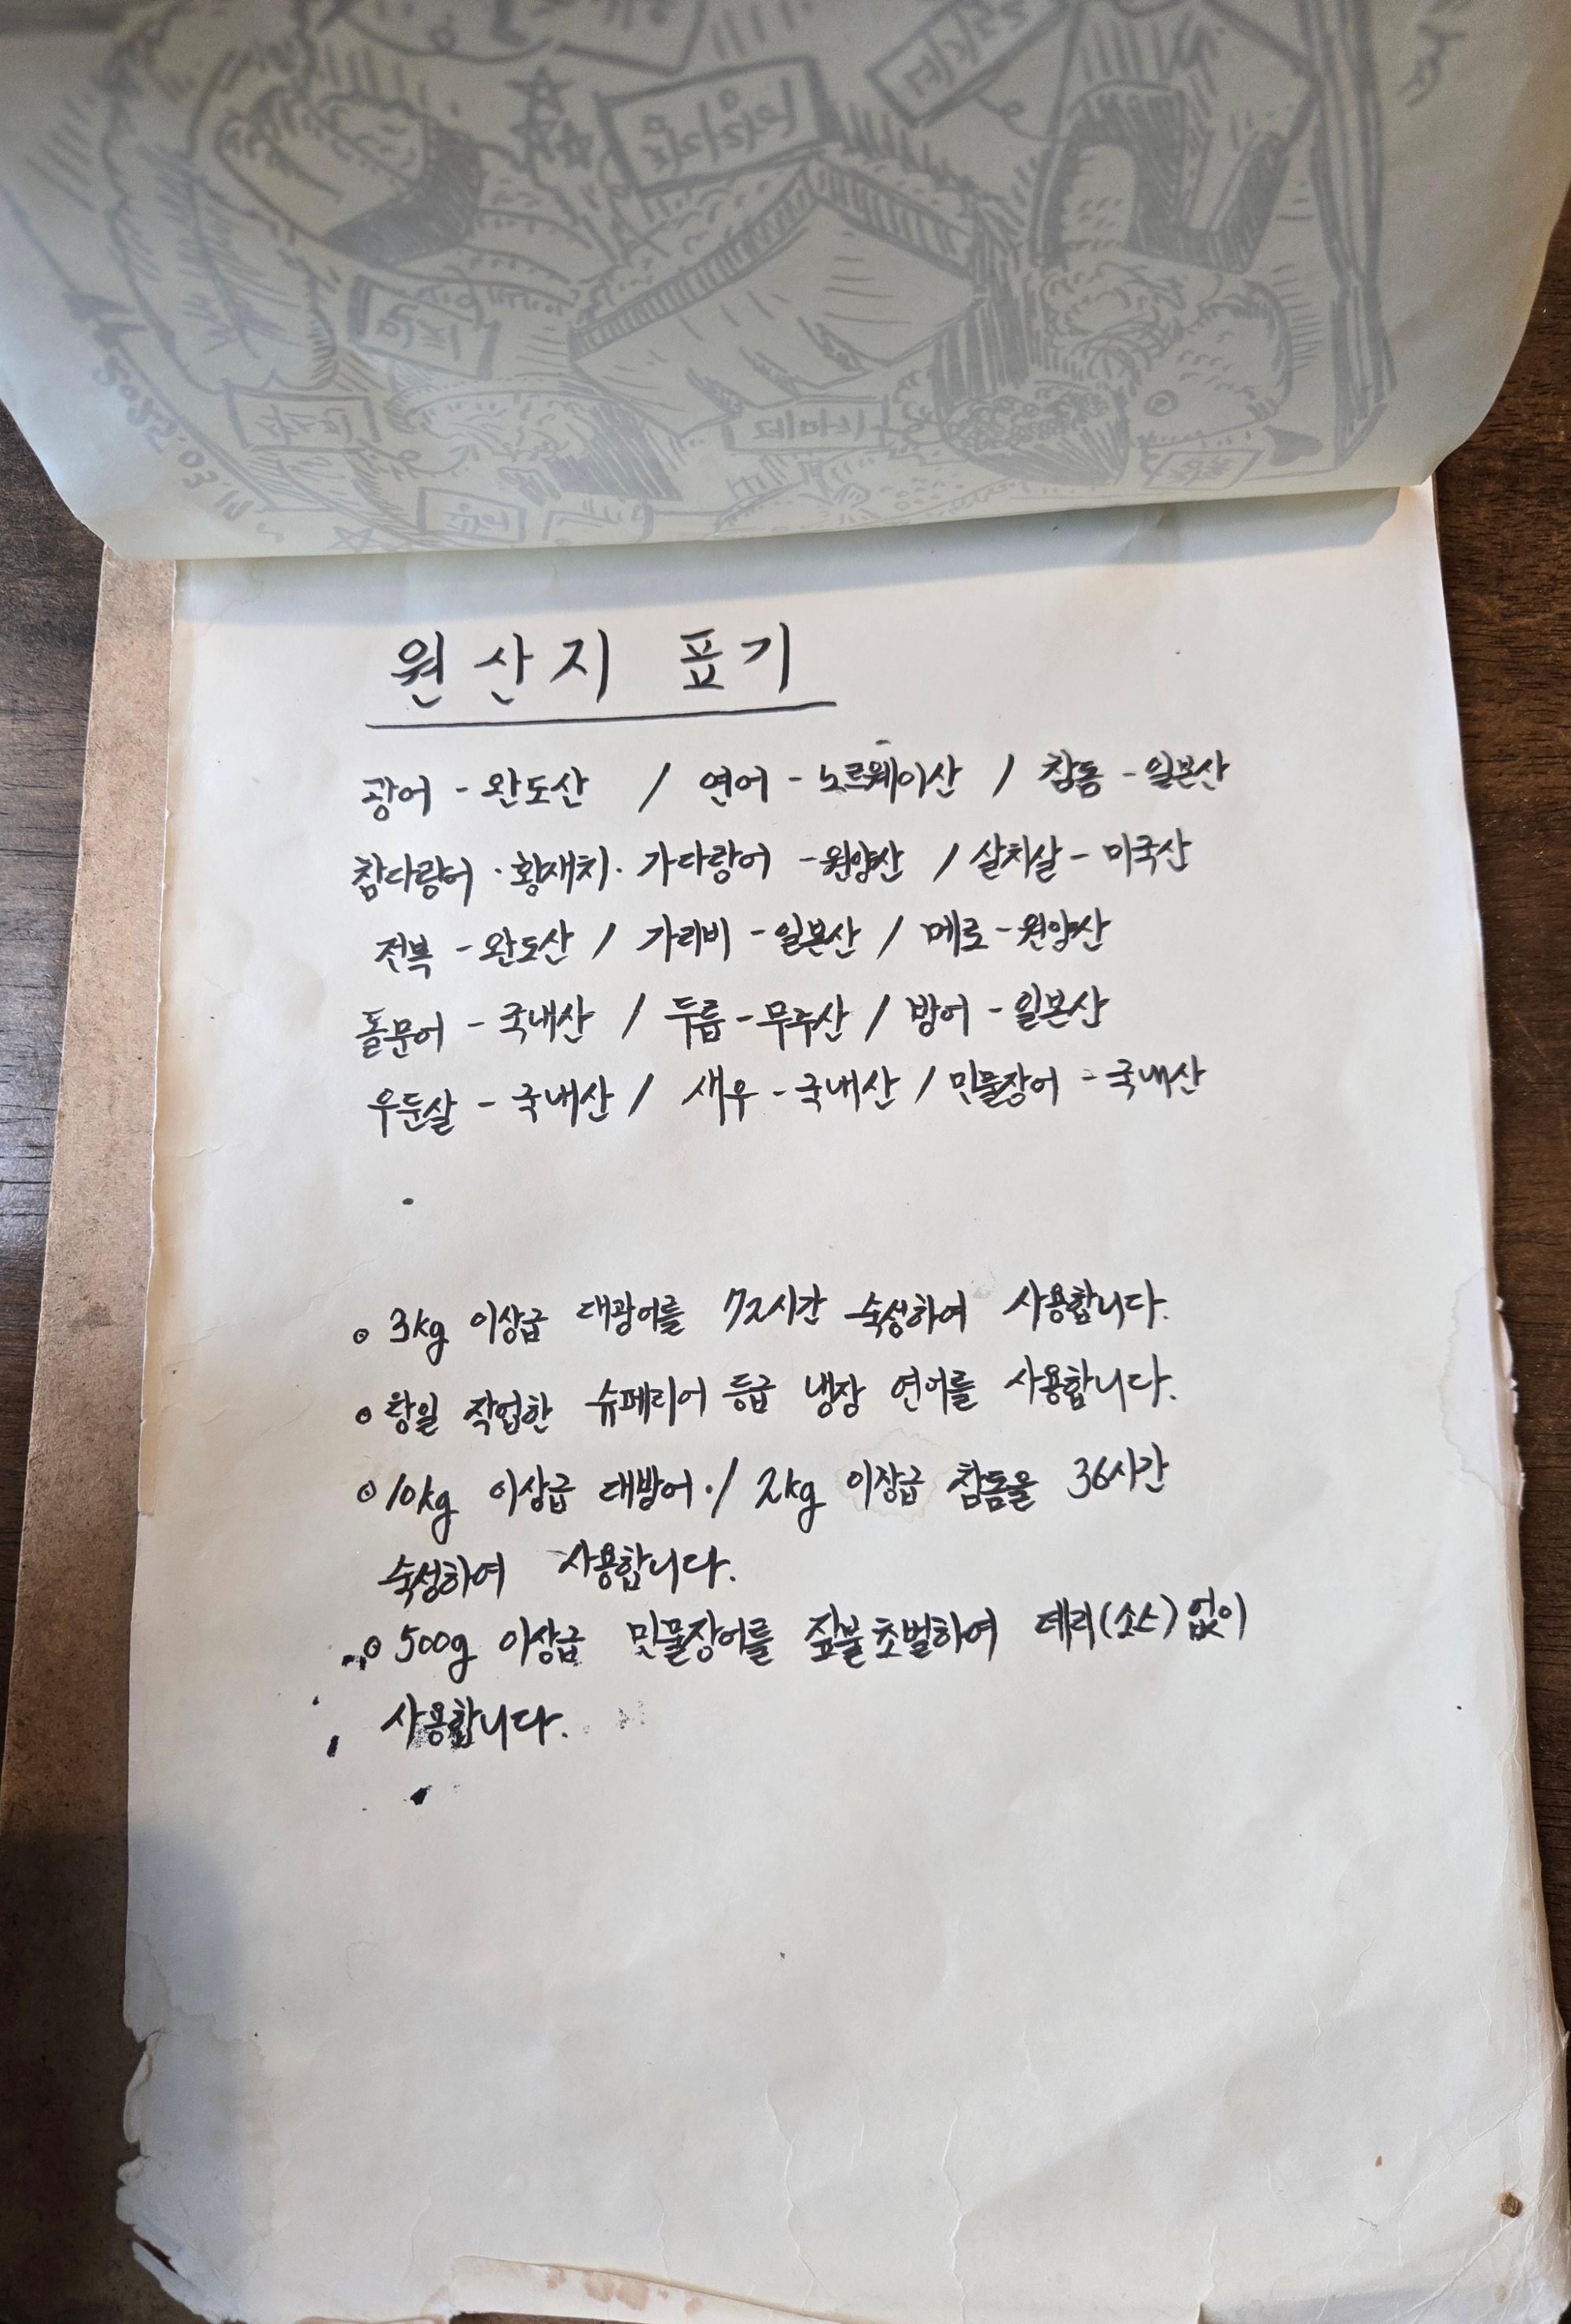 원산지 표기
광어 - 완도산 / 연어 - 노르웨이산 / 참돔 - 일본산
참다랑어 · 황새치 · 가다랑어 - 원양산 / 살치살 - 미국산
전복 - 완도산 / 가리비 - 일본산 / 메로 - 원양산
돌문어 - 국내산 / 두릅 - 무주산 / 방어 - 일본산
우둔살 - 국내산 / 새우 - 국내산 / 민물장어 - 국내산
o 3kg 이상급 대광어를 72시간 숙성하여 사용합니다.
o 작업한 슈페리어 등급 냉장 연어를 사용합니다.
o 10kg 이상급 대방어 · / 2kg 이상급 참돔을 36시간
숙성하여 사용합니다.
o 500g 이상급 민물장어를 짚불초벌하여 데리(소스) 없이
사용합니다.